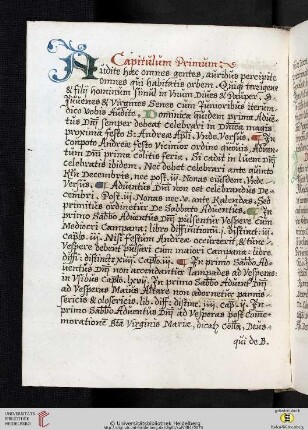 Capitulum Primum
Audite hæc omnes gentes, auribus percipite
omnes qui habitatis orbem. Quiq; terrigenæ
& filij hominum simul in Unum Dives & Pauper. &
Juvenes & Virgines Senes cum Junioribus
dico Vobis Audite. Dominica quidem prima Adventus
Dñi semper debeat celebrari in Dñica magis
proxima festo S: Andreæ Apli. Vnde. Versus. In
Conpoto Andreæ festo Vicinior ordine quovis, Adventum
Dñi prima colitis feria. Si cadit in lucem dñi
celebratis ibidem. Nec debet celebrari ante
Decembris, nec post .iij. Nonas eiusdem. Vnde.
Versus. Adventus Dñi non est celebrandus
Post .iij. Nonas nec .v. ante Kalendas. Sed
primitius ordinetur De Sabbato Adventus. In
primo Sabbo Adventus Dñi pulsentur Vesperæ cum
Mediocri Campana: libro diffinitionũ .j. distinct: .iij.
cap: .ij. Nisi festum Andreæ occurerit, & tunc
Vesperæ debent pulsari cum maiori Campana: libro
diffi: distinct: Cap: .iij. In primo Sabbo
Adventus Dñi non accendantur lampades ad Vesperas:
in Vsibus Cap: In primo Sabbo Advent Dñi
ad Vesperas Maius Altare non adornetur pannis
sericis & olosericis. lib: diff: distinc: .iiij. cap: .ij. In
primo Sabbo Adventus Dñi ad Vesperas post
Commemorationem Btæ Virginis Mariæ, dicat Collã, Deus
qui de B.
UNIVERSITÄTS-
BIBLIOTHEK
HEIDELBERG
© Universitätsbibliothek Heidelberg
gefördert durch